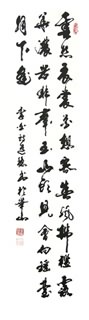 雲想衣裳花想容春風拂檻露
華濃若非群玉山頭見會向瑤臺
月下逢
李白詩 書於 山